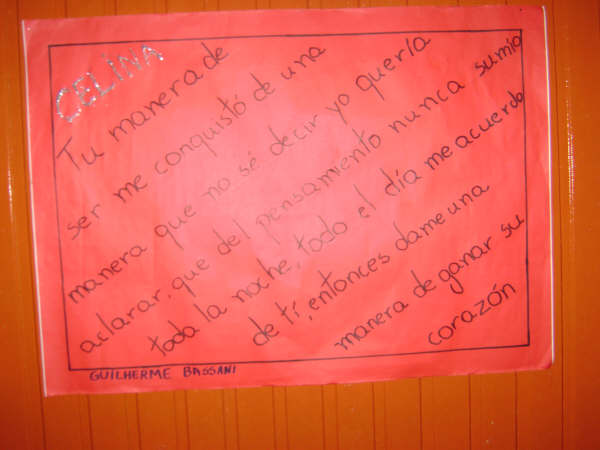 CELINA
Tu manera de
ser me conquistó de una
manera que no sé decir yo quería
aclarar, que del pensamiento nunca sumio
toda la noche, todo el día me acuerdo
de tí, entonces dame una
manera de ganar su
corazón
GUILHERME BASSANI